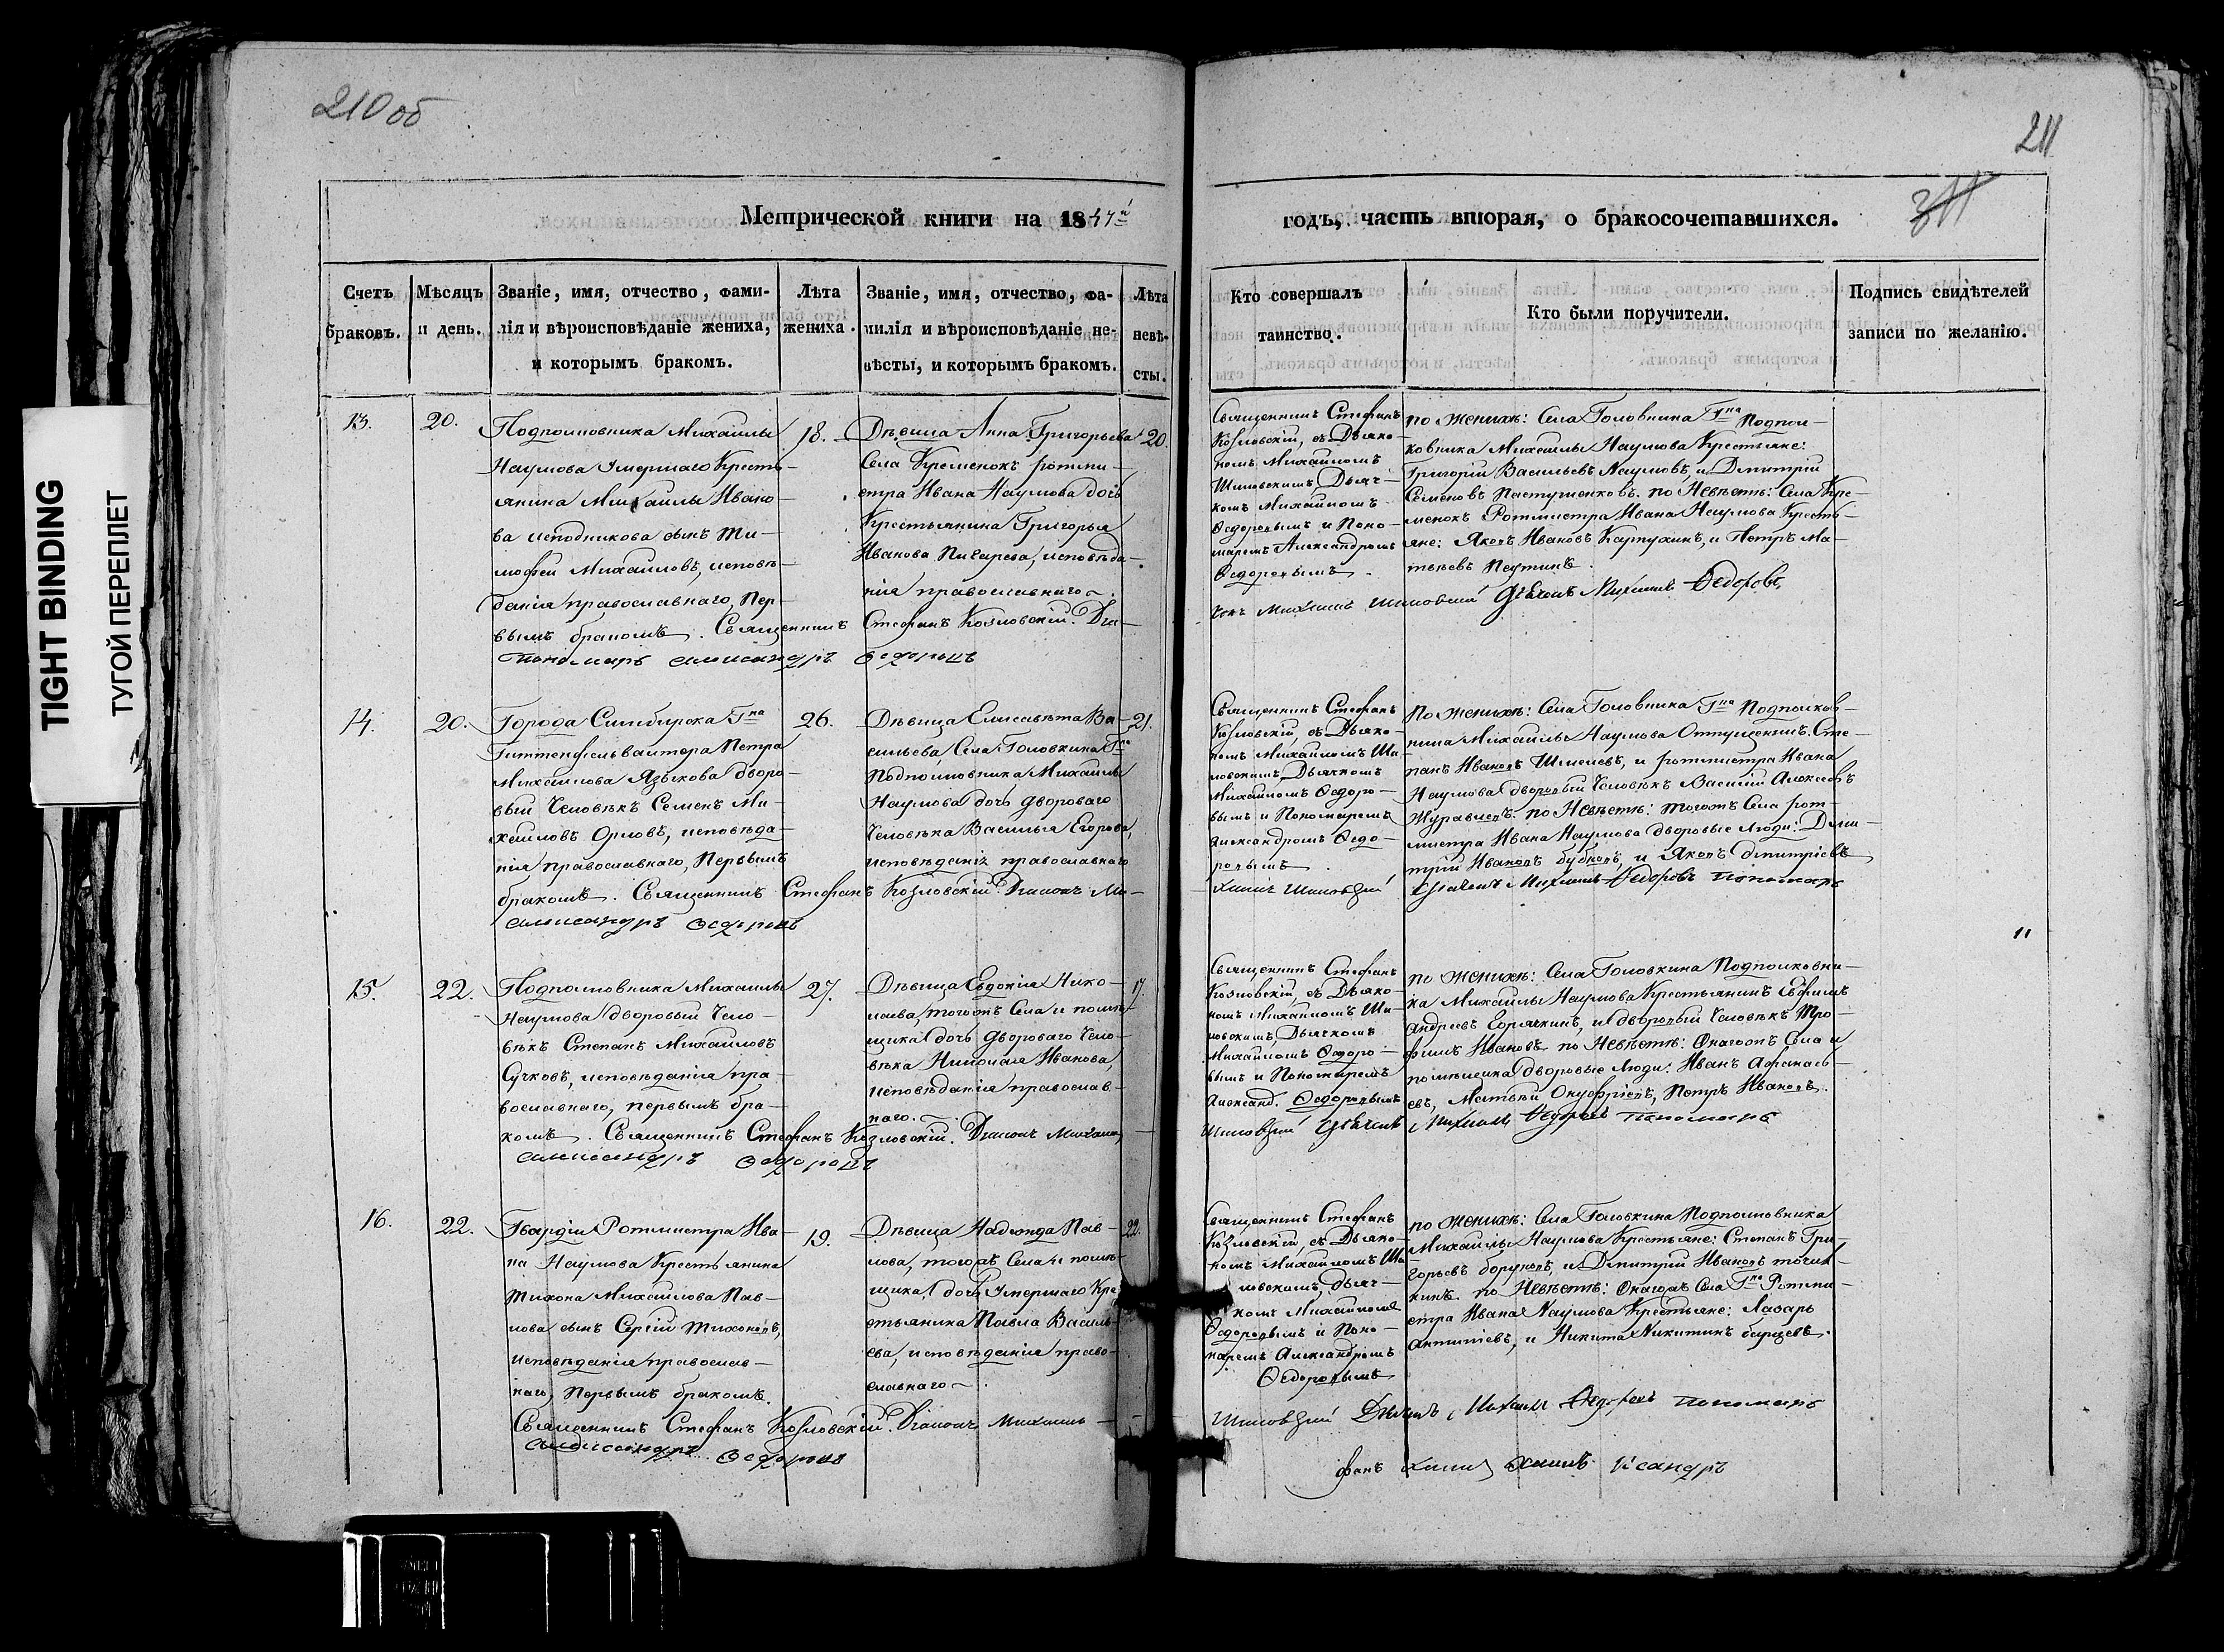 210 об
211
311
TIGHT BINDING
ТУГОЙ ПЕРЕПЛЕТ
Метрической книги на 1847й
годъ, часть вторая, о бракосочетавшихся.
Счетъ браковъ.
Мѣсяцъ и день.
Званіе, имя, отчество, фами-
лія и вѣроисповѣданіе жениха,
и которымъ бракомъ.
Лѣта жениха.
Званіе, имя, отчество, фа-
милія и вѣроисповѣданіе не-
вѣсты, и которымъ бракомъ.
Лѣта невѣ-
сты.
Кто совершалъ
таинство.
Кто были поручители.
Подпись свидѣтелей
записи по желанію.
13.
20.
Подполковника Михаилы
Наумова умершаго Кресть-
янина Михаилы Ивано-
ва сынъ Ти-
мофей Михаиловъ, исповѣ-
данія православнаго, пер-
вымъ бракомъ. Священникъ
Пономарь Александръ
18.
Дѣвица Анна Григорьева
Села Кременокъ ротми-
стра Ивана Наумова дочь
Крестьянина Григорья
Иванова Пигарева, исповѣда-
нія православнаго.
Стефанъ Козловскій. Діа-
Ѳедоровъ
20.
Священникъ Стефанъ
Козловскій, съ Діако-
номъ Михаиломъ
Шиловскимъ, Дьяч-
комъ Михаиломъ
Ѳедоровымъ и Поно-
маремъ Александромъ
Ѳедоровымъ.
по Женихѣ: Села Головкина Гна Подпол-
ковника Михаилы Наумова Крестьяне:
Григорій Васильевъ Наумовъ, и Дмитрій
Семеновъ Пастушенковъ. по Невѣстѣ: Села Кре-
менокъ Ротмистра Ивана Наумова Кресть-
яне: Яковъ Ивановъ Картухинъ, и Петръ Ма-
твѣевъ
конъ Михаилъ Шиловскій Дьячекъ Михаилъ Ѳедоровъ
14.
20.
Города Симбирска Гна
Гиттенфельвалтера Петра
Михаилова Языкова дворо-
вый Человѣкъ Семенъ Ми-
хаиловъ Орловъ, исповѣда-
нія православнаго, Первымъ
бракомъ. Священникъ
Александръ Ѳедоровъ
26.
Дѣвица Елисавѣта Ва-
сильева Села Головкина Гна
Подполковника Михаилы
Наумова дочь дворового
Человѣка Василья Егорова,
исповѣданія православнаго
Стефанъ Козловскій Діаконъ Ми-
21.
Священникъ Стефанъ
Козловскій, съ Діако-
номъ Михаиломъ Ши-
ловскимъ, Дьячкомъ
Михаиломъ Ѳедоро-
вымъ и Пономаремъ
Александромъ Ѳедо-
ровымъ.
по Женихѣ: Села Головкина Гна Подполков-
ника Михаилы Наумова Отпущенникъ Сте-
панъ Ивановъ и ротмистра Ивана
Наумова дворовый Человѣкъ Василій Алексѣевъ
Журавлевъ. по Невѣстѣ: тогожъ Села рот-
мистра Ивана Наумова дворовые люди: Дми-
трій Ивановъ Бубновъ, и Яковъ Дмитріевъ
хаилъ Шиловскій Дьячекъ Михаилъ Ѳедоровъ Пономарь
15.
22.
Подполковника Михаилы
Наумова дворовый Чело-
вѣкъ Степанъ Михаиловъ
Сучковъ, исповѣданія пра-
вославнаго, первымъ бра-
комъ. Священникъ Стефанъ
Александръ Ѳедоровъ
27.
Дѣвица Евдокія Нико-
лаева, тогожъ Села и помѣ-
щика дочь дворового Чело-
вѣка Николая Иванова,
исповѣданія православ-
наго.
Козловскій. Діаконъ Михаилъ
17.
Священникъ Стефанъ
Козловскій, съ Діако-
номъ Михаиломъ Ши-
ловскимъ, Дьячкомъ
Михаиломъ Ѳедоро-
вымъ и Пономаремъ
Александ. Ѳедоровымъ
по Женихѣ: Села Головкина Подполковни-
ка Михаилы Наумова Крестьянинъ Ефимъ
Андреевъ Горячкинъ, и дворовый Человѣкъ Тро-
фимъ Ивановъ. по Невѣстѣ: Онагожъ Села и
помѣщика дворовые люди: Иванъ Афанась-
евъ, Матвѣй Онуфріевъ, Петръ Ивановъ.
Шиловскій Дьячекъ Михаилъ Ѳедоровъ Пономарь
16.
22.
Гвардіи Ротмистра Ива-
на Наумова Крестьянина
Тихона Михаилова Пав-
лова сынъ Сергій Тихоновъ,
исповѣданія православ-
наго, первымъ бракомъ.
Священникъ Стефанъ
Александръ Ѳедоровъ
19.
Дѣвица Надежда Пав-
лова, тогожъ Села и помѣ-
щика дочь умершаго Кре-
стьянина Павла Василь-
ева, исповѣданія право-
славнаго.
Козловскій. Діаконъ Михаилъ
22.
Священникъ Стефанъ
Козловскій, съ Діако-
номъ Михаиломъ Ши-
ловскимъ, дьяч-
комъ Михаиломъ
Ѳедоровымъ и Поно-
маремъ Александромъ
Ѳедоровымъ
по Женихѣ: Села Головкина Подполковника
Михаилы Наумова Крестьяне: Степанъ Гри-
горьевъ и Дмитрій Ивановъ
по Невѣстѣ: Онагожъ Села Гна Ротми-
стра Ивана Наумова Крестьяне: Лазарь
Антипіевъ, и Никита Никитинъ
Шиловскій Дьячекъ Михаилъ Ѳедоровъ Пономарь
фанъ хаилъ хаилъ ксандръ